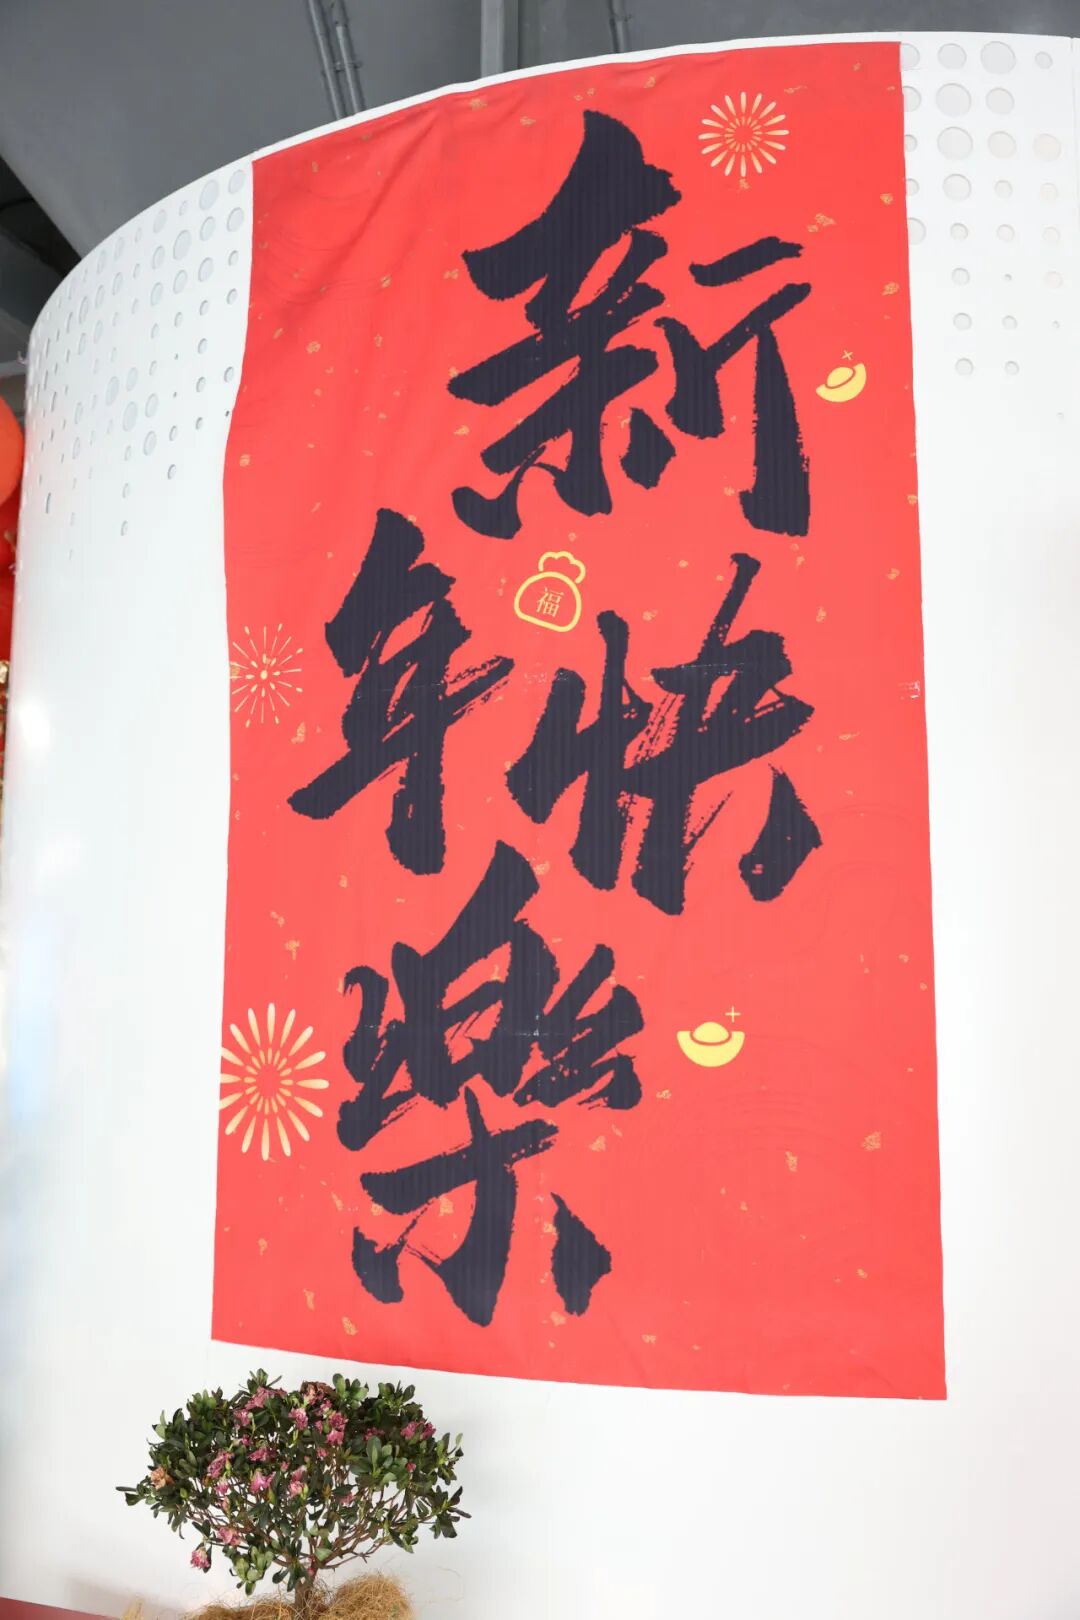 新
年快
樂
福